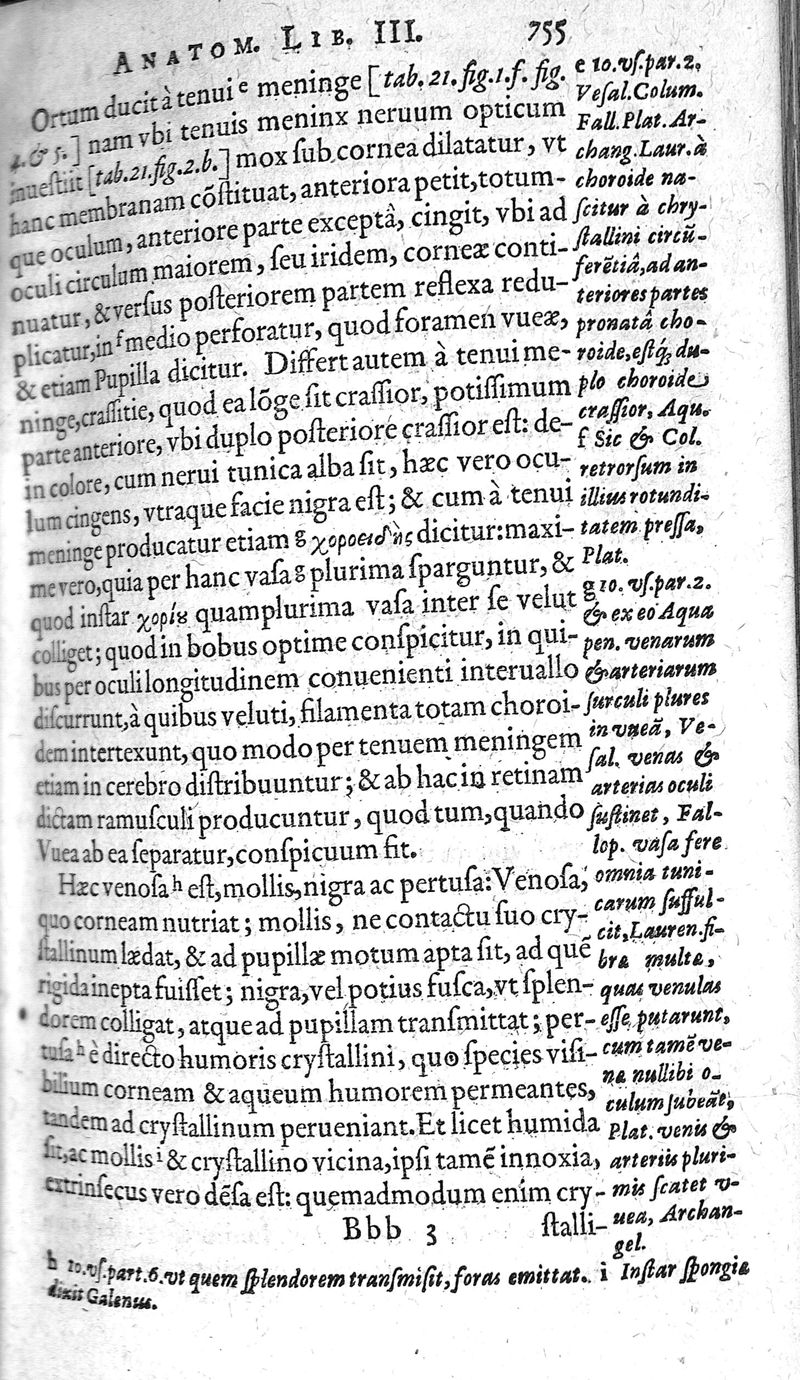 ANATOM. LIB. III. 755
Ortum ducit à tenui e meninge [tab. 21. fig. 1. f. fig.
4. & 5.] nam vbi tenuis meninx neruum opticum
inuestiit [tab. 21. fig. 2. b.] mox sub cornea dilatatur, vt
hanc membranam cõstituat, anteriora petit, totum-
que oculum, anteriore parte exceptâ, cingit, vbi ad
oculi circulum maiorem, seu iridem, corneæ conti-
nuatur, & versus posteriorem partem reflexa redu-
plicatur, in f medio perforatur, quod foramen vueæ,
& etiam Pupilla dicitur. Differt autem à tenui me-
ninge, crassitie, quod ea lõge sit crassior, potissimum
parte anteriore, vbi duplo posteriore crassior est: de-
in colore, cum nerui tunica alba sit, hæc vero ocu-
lum cingens, vtraque facie nigra est; & cum à tenui
meninge producatur etiam g χοροειδὴς dicitur: maxi-
me vero, quia per hanc vasa g plurima sparguntur, &
quod instar χορίȣ quamplurima vasa inter se velut
colliget; quod in bobus optime conspicitur, in qui-
bus per oculi longitudinem conuenienti interuallo
discurrunt, à quibus veluti, filamenta totam choroi-
dem intertexunt, quo modo per tenuem meningem
etiam in cerebro distribuuntur; & ab hac in retinam
dictam ramusculi producuntur, quod tum, quando
Vuea ab ea separatur, conspicuum fit.
Hæc venosa h est, mollis, nigra ac pertusa: Venosa,
quo corneam nutriat; mollis, ne contactu suo cry-
stallinum lædat, & ad pupillæ motum apta sit, ad quẽ
rigida inepta fuisset; nigra, vel potius fusca, vt splen-
dorem colligat, atque ad pupillam transmittat; per-
tusa h è directo humoris crystallini, quo species visi-
bilium corneam & aqueum humorem permeantes,
tandem ad crystallinum perueniant. Et licet humida
sit, ac mollis i & crystallino vicina, ipsi tamẽ innoxia,
extrinsecus vero dẽsa est: quemadmodum enim cry-
Bbb 3 stalli-
e 10. vs. par. 2.
Vesal. Colum.
Fall. Plat. Ar-
chang. Laur. à
choroide na-
scitur à chry-
stallini circũ-
ferẽtiâ, ad an-
teriores partes
pronatâ cho-
roide, estq́; du-
plo choroide
crassior, Aqu.
f Sic & Col.
retrorsum in
illius rotundi-
tatem pressa,
Plat.
g 10. vs. par. 2.
& ex eo Aqua
pen. venarum
& arteriarum
surculi plures
in vueã, Ve-
sal. venas &
arterias oculi
sustinet, Fal-
lop. vasa fere
omnia tuni-
carum sufful-
cit, Lauren. fi-
bræ multæ,
quas venulas
esse putarunt,
cum tamẽ ve-
næ nullibi o-
culum subeãt,
Plat. venis &
arteriis pluri-
mis scatet v-
uea, Archan-
gel.
h 10. vs. part. 6. vt quem splendorem transmisit, foras emittat. i Instar spongiæ
dixit Galenus.